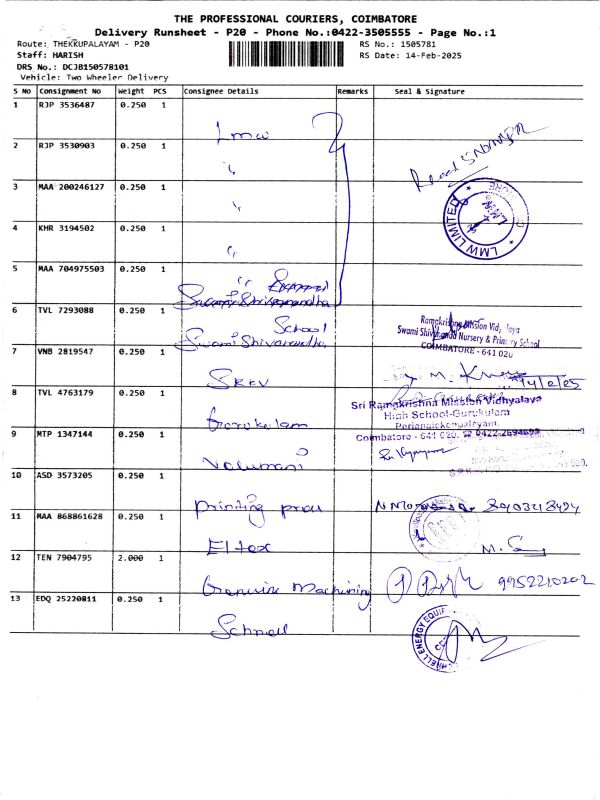 THE PROFESSIONAL COURIERS, COIMBATORE
Delivery Runsheet - P20 - Phone No.:0422-3505555 - Page No.:1
Route: THEKKUPALAYAM - P20 RS No.: 1505781
Staff: HARISH RS Date: 14-Feb-2025
DRS No.: DCJB150578101
Vehicle: Two Wheeler Delivery
S NO Consignment No Weight PCS Consignee Details Remarks Seal & Signature
1 RJP 3536487 0.250 1
Lmw
2 RJP 3530903 0.250 1
"
3 MAA 200246127 0.250 1
"
LMW LIMITED
4 KHR 3194502 0.250 1
"
5 MAA 704975503 0.250 1
"
Swami Shivananda
6 TVL 7293088 0.250 1
School
Swami Shivanandha
Ramakrishna Mission Vidyalaya
Swami Shivananda Nursery & Primary School
COIMBATORE - 641 020
7 VNB 2819547 0.250 1
SRKV
14/2/25
8 TVL 4763179 0.250 1
Gurukulam
Sri Ramakrishna Mission Vidhyalaya
High School-Gurukulam
Perianaickenpalayam,
Coimbatore - 641 020. ☎ 0422-2694693
9 MTP 1347144 0.250 1
Valumani
10 ASD 3573205 0.250 1
Printing press
11 MAA 868861628 0.250 1
Eltex
12 TEN 7904795 2.000 1
Genuine Machining
9952210202
13 EDQ 25220811 0.250 1
Schnell
SCHNELL ENERGY EQUIP